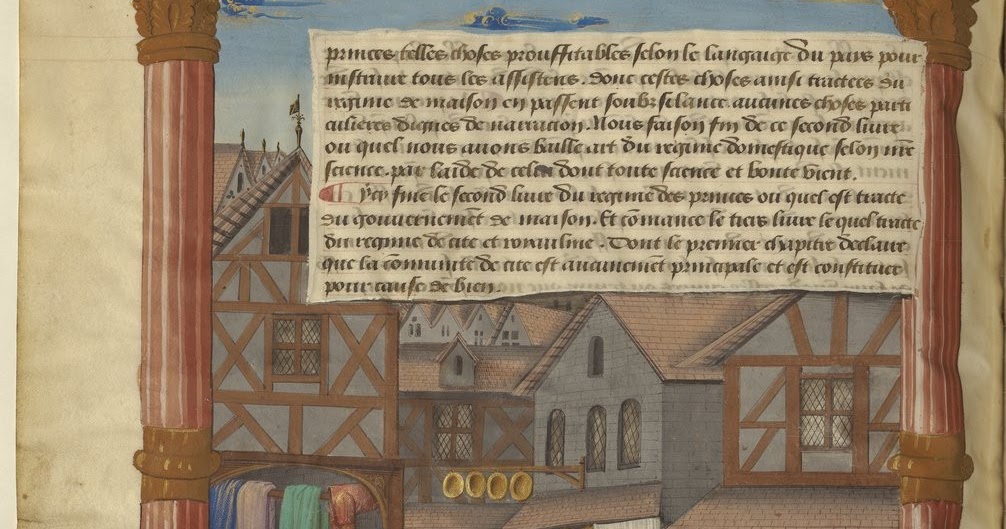 princes telles choses prouffitables selon le langaige du pays pour
instruire tous les assistens. Donc cestes choses ainsi tractees du
regime de maison en passent soubz silance aucunes choses parti
culieres dignes de narracion. Nous faison fin de ce second livre
ou quel nous avons baille art du regime domestique selon nre
science. par laide de celui dont toute science et bonte vient.
ycy fine le second livre du regime des princes ou quel est tracte
du gouvernemẽt de maison. Et cõmance le tiers livre le quel tracte
du regime de cite et royaulme. Dont le premier chapitre declaire
que la cõmunite de cite est aucunement principale et est constituee
pour cause de bien.